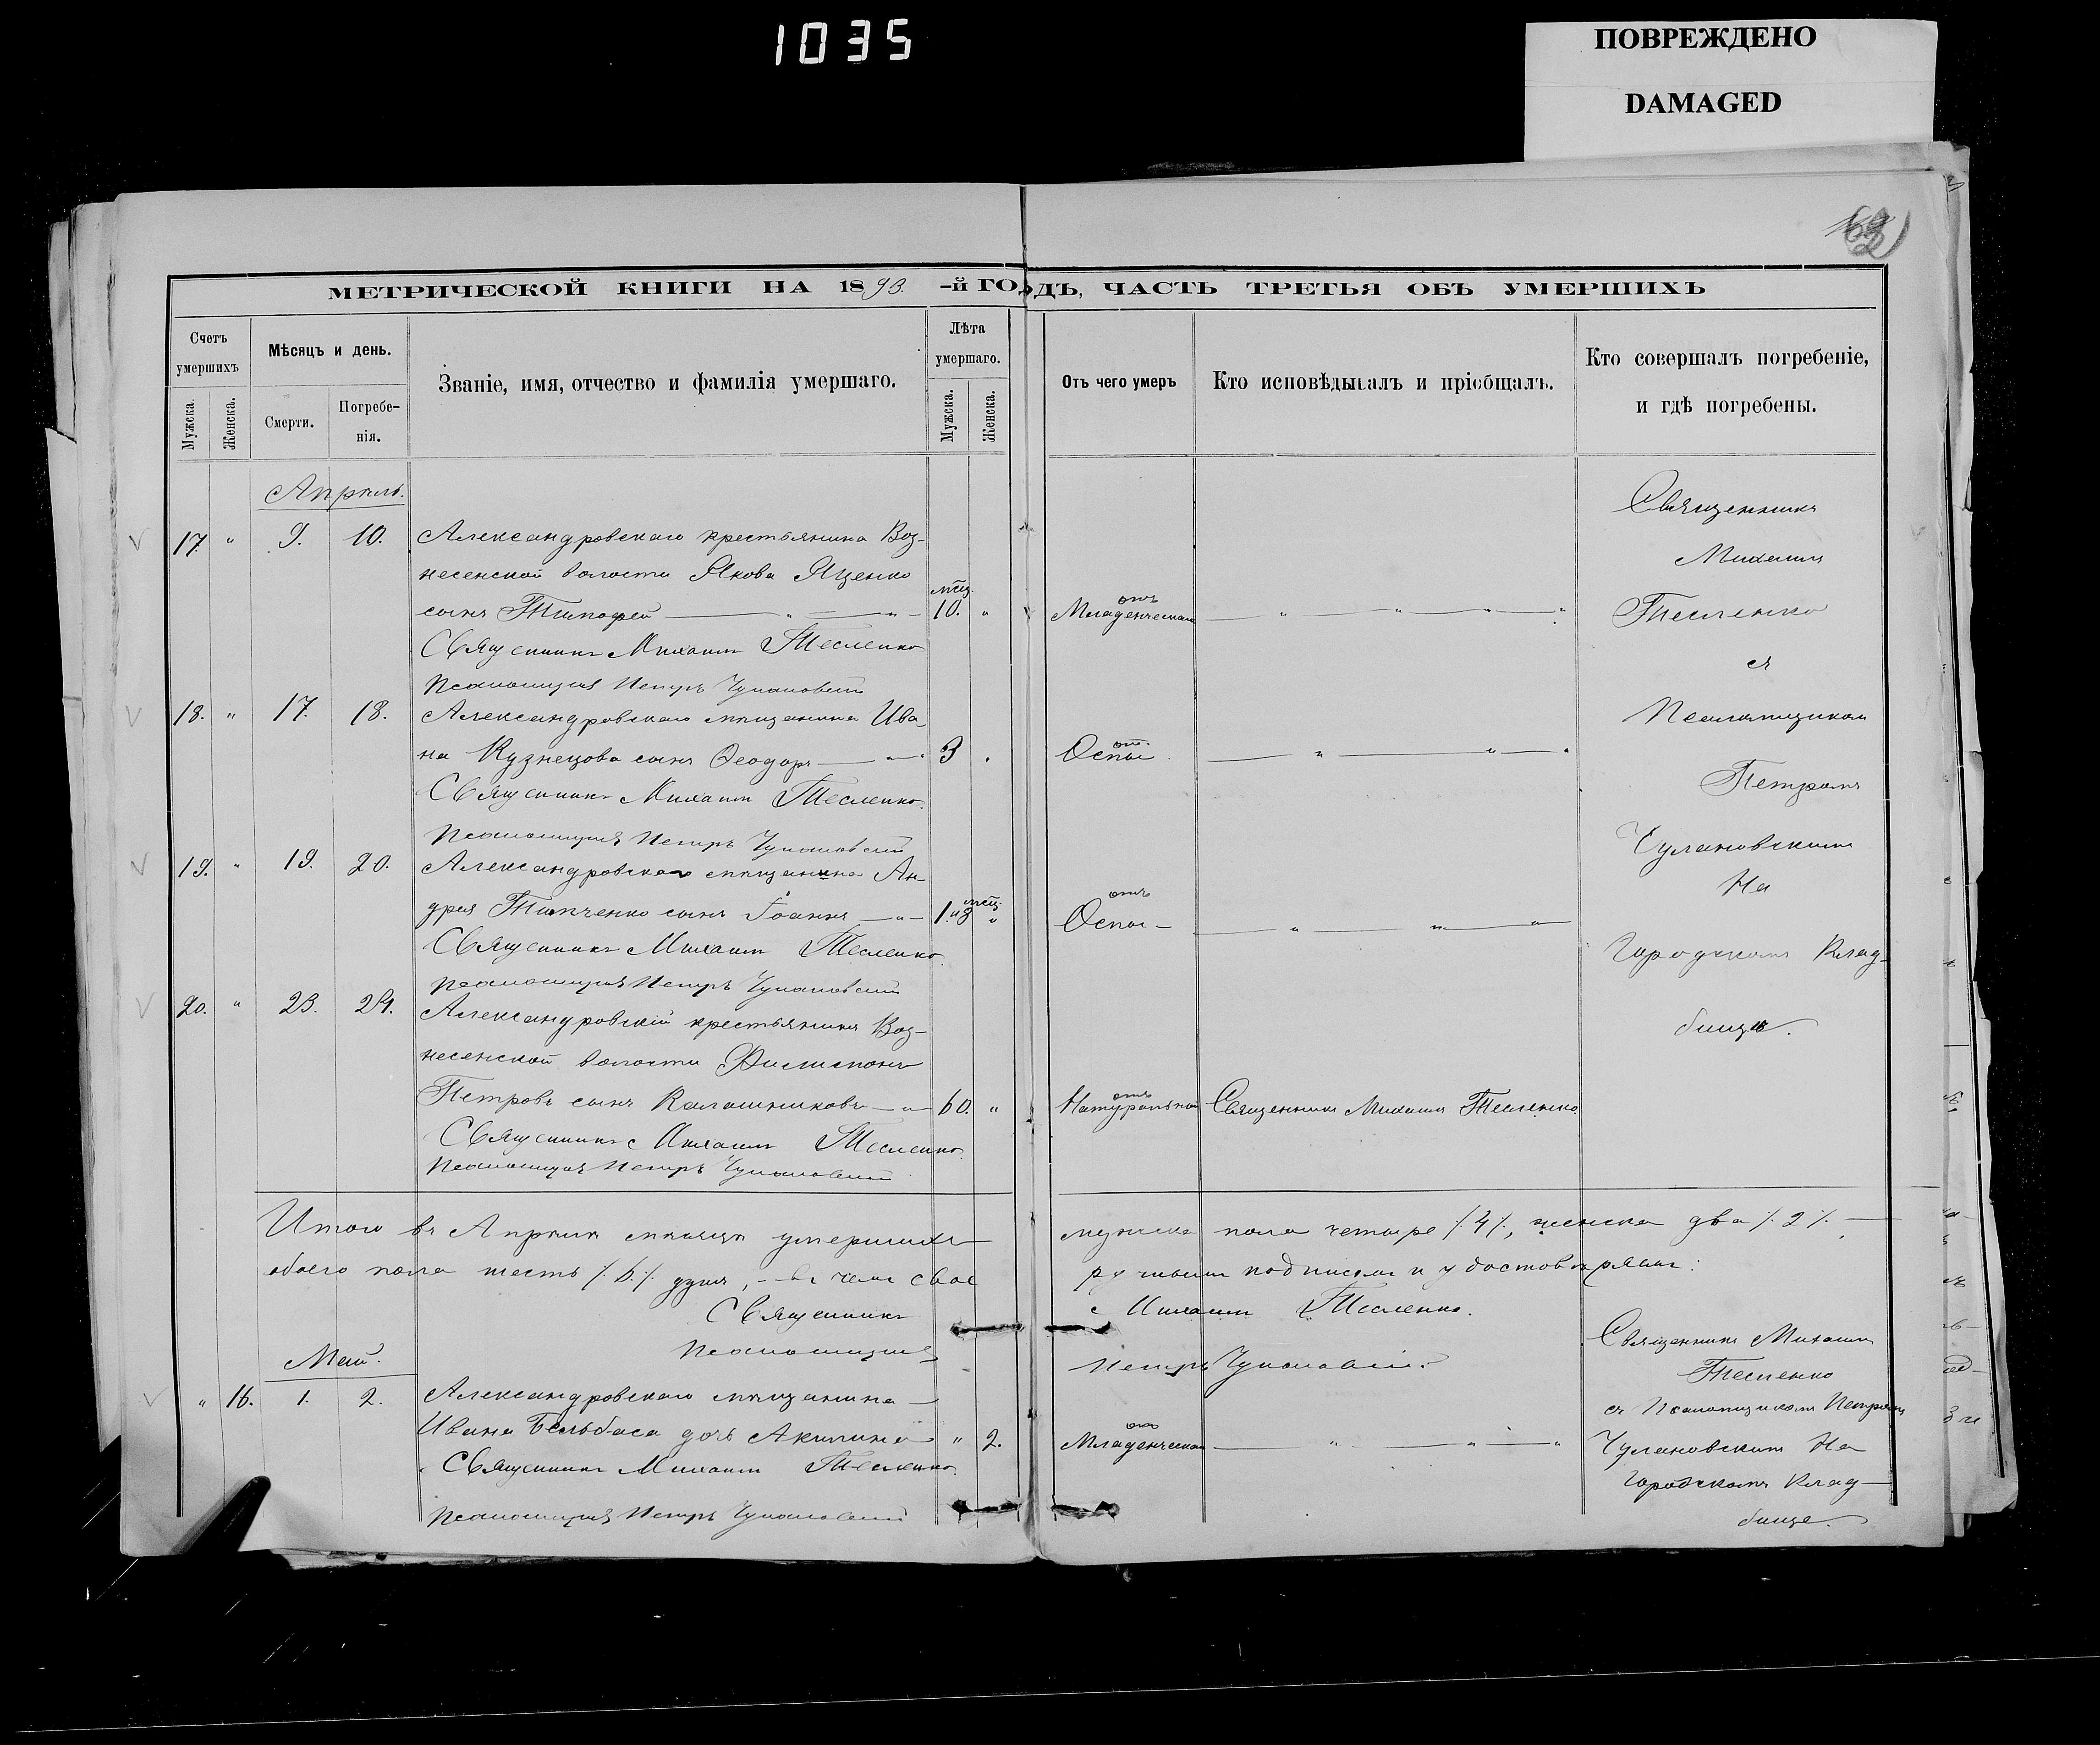 1035
ПОВРЕЖДЕНО
DAMAGED
МЕТРИЧЕСКОЙ КНИГИ НА 1893.-й ГОДЪ, ЧАСТЬ ТРЕТЬЯ ОБЪ УМЕРШИХЪ
Счетъ умершихъ
Мужска. Женска.
Мѣсяцъ и день.
Смерти. Погребенія.
Званіе, имя, отчество и фамилія умершаго.
Лѣта умершаго.
Мужска. Женска.
Отъ чего умеръ
Кто исповѣдывалъ и пріобщалъ.
Кто совершалъ погребеніе,
и гдѣ погребены.
Апрѣль.
17. " 9. 10. Александровскаго крестьянина Воз-
несенской волости Якова Яценко
сынъ Тимофей мѣц. 10. " отъ Младенческой
Священникъ Михаилъ Тесленко
Псаломщикъ Петръ Чулановскій
18. " 17. 18. Александровскаго мѣщанина Ива-
на Кузнецова сынъ Ѳеодоръ 3 отъ Оспы
Священникъ Михаилъ Тесленко.
Псаломщикъ Петръ Чулановскій
19. " 19. 20. Александровскаго мѣщанина Ан-
дрея Тимченко сынъ Іоаннъ 1 " 3 мѣц. " отъ Оспы
Священникъ Михаилъ Тесленко.
Псаломщикъ Петръ Чулановскій
20. " 23. 24. Александровскій крестьянинъ Воз-
несенской волости Филимонъ
Петровъ сынъ Калашниковъ 60. " отъ Натуральной Священникъ Михаилъ Тесленко
Священникъ Михаилъ Тесленко.
Псаломщикъ Петръ Чулановскій
Священникъ
Михаилъ
Тесленко
съ
Псаломщикомъ
Петромъ
Чулановскимъ
На
Городскомъ Клад-
бищѣ.
Итого въ Апрѣлѣ мѣсяцѣ умершихъ мужска пола четыре /.4/., женска два /.2/.
обоего пола шесть /.6./. душъ, - въ чемъ свое ручнымъ подписомъ и удостовѣряемъ:
Священникъ Михаилъ Тесленко.
Псаломщикъ Петръ Чулановскій.
Май.
" 16. 1. 2. Александровскаго мѣщанина
Ивана Бельбаса дочь Акилина " 2. отъ Младенческой
Священникъ Михаилъ Тесленко.
Псаломщикъ Петръ Чулановскій
Священникъ Михаилъ
Тесленко
съ Псаломщикомъ Петромъ
Чулановскимъ На
Городскомъ Клад-
бище.